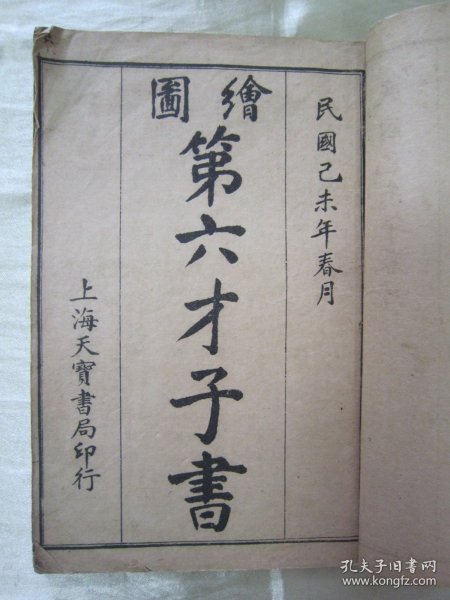 民國己未年春月
繪圖
第六才子書
上海天寶書局印行
孔夫子旧书网
www.kongfz.com